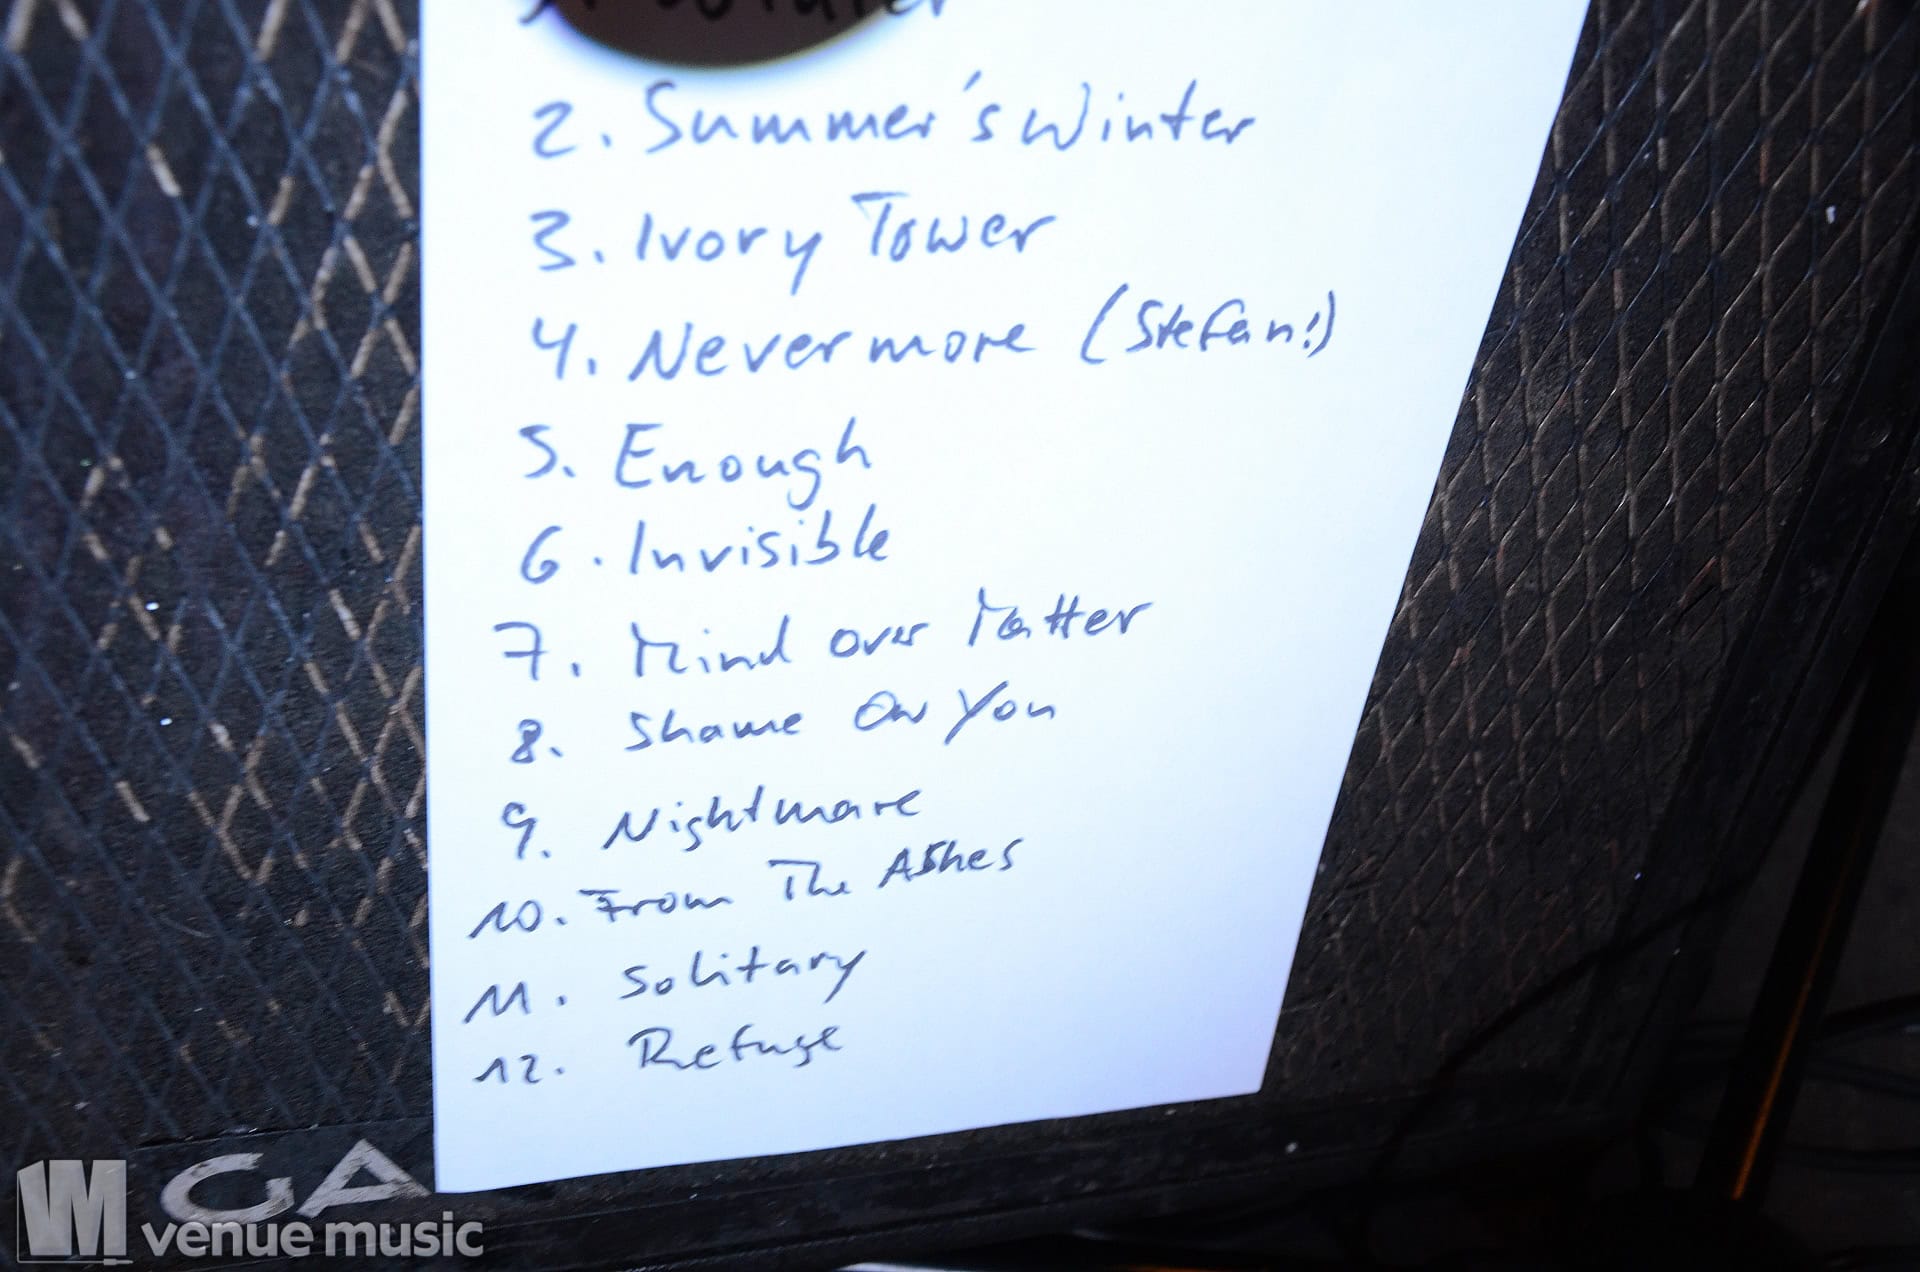 2. Summer's Winter
3. Ivory Tower
4. Nevermore (Stefan!)
5. Enough
6. Invisible
7. Mind over Matter
8. Shame On You
9. Nightmare
10. From The Ashes
11. Solitary
12. Refuge
GA
VM venue music